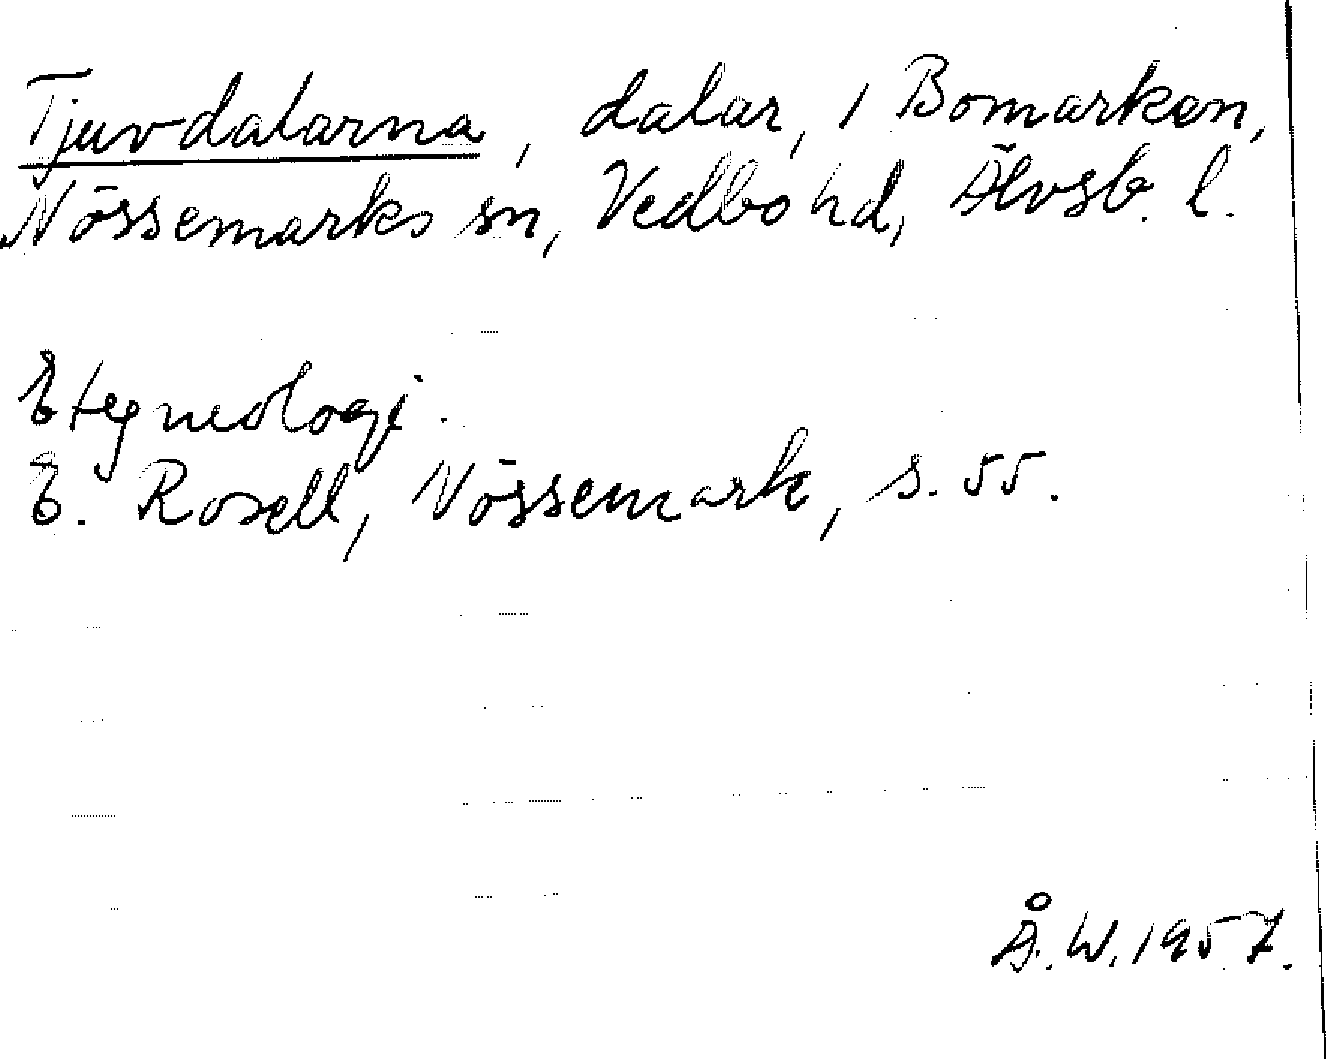 Tjuvdalarna, dalar, i Bomarken,
Nössemarks sn, Vedbo hd, Älvsb. l.
Etymologi.
E. Rosell, Nössemark, s. 55.
Å. W. 1957.